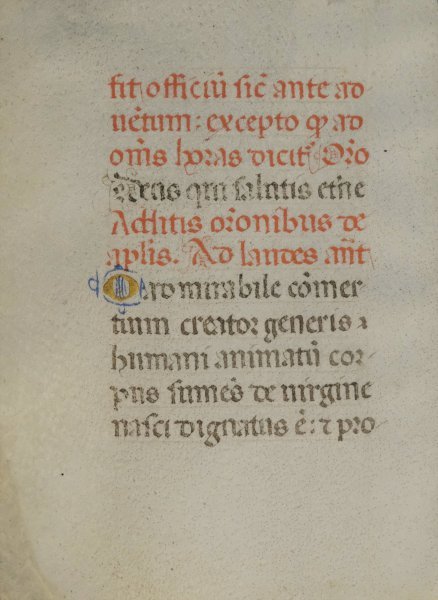 fit officiũ sic̃ ante ad
uẽtum: excepto ꝙ ad
om̃s horas dicit̃. Or̃o
Deus qui salutis et̃ne
Ad hitis or̃onibus de
aplis. Ad laudes añt
O ro mirabile cõmer
tium creator generis
humani animatũ cor
pus sumẽs de uirgine
nasci dignatus ẽ: ⁊ pro